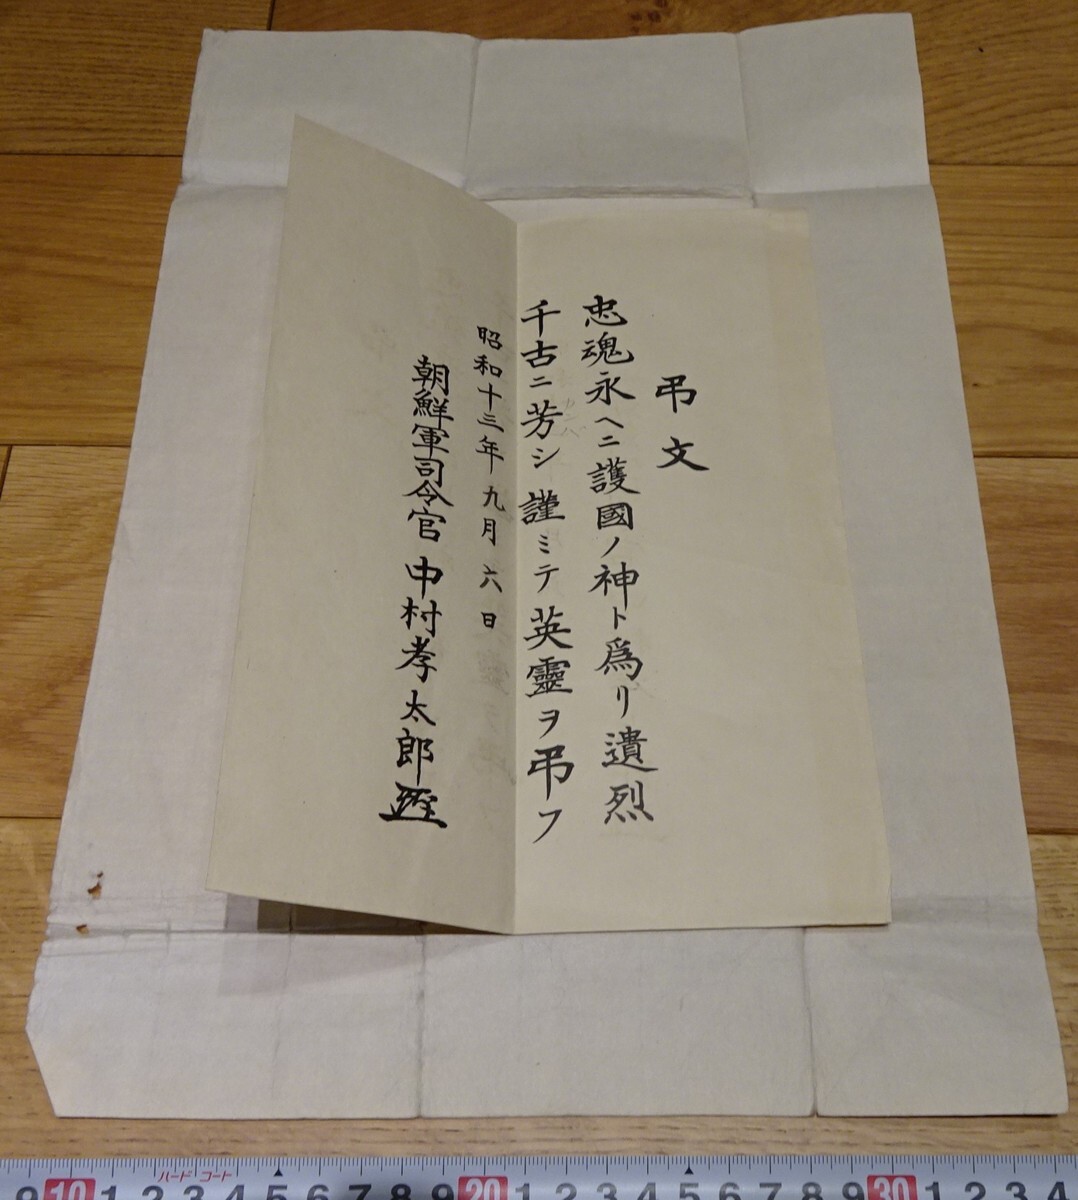 弔文
忠魂永ヘニ護國ノ神ト爲リ遺烈
千古ニ芳シ謹ミテ英靈ヲ弔フ
昭和十三年九月六日
朝鮮軍司令官 中村孝太郎
ハードコート
9 10 1 2 3 4 5 6 7 8 9 20 1 2 3 4 5 6 7 8 9 30 1 2 3 4